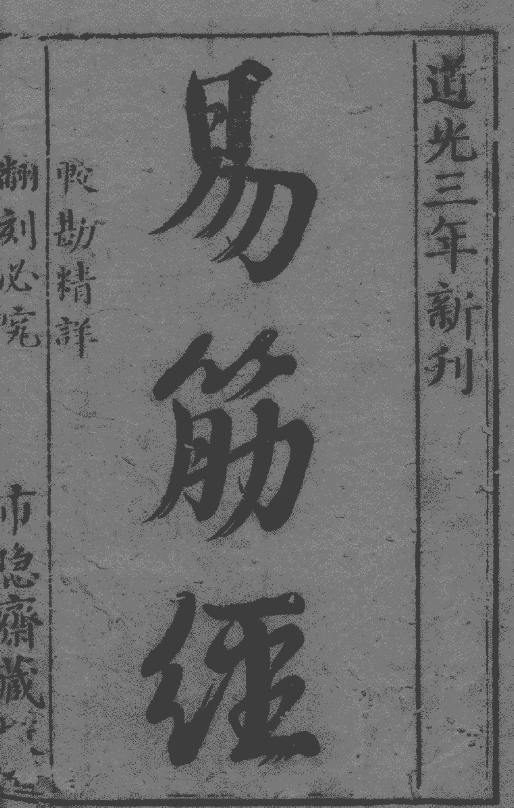 道光三年新刋
易筋經
勘精詳
翻刻必究
市隐齋藏